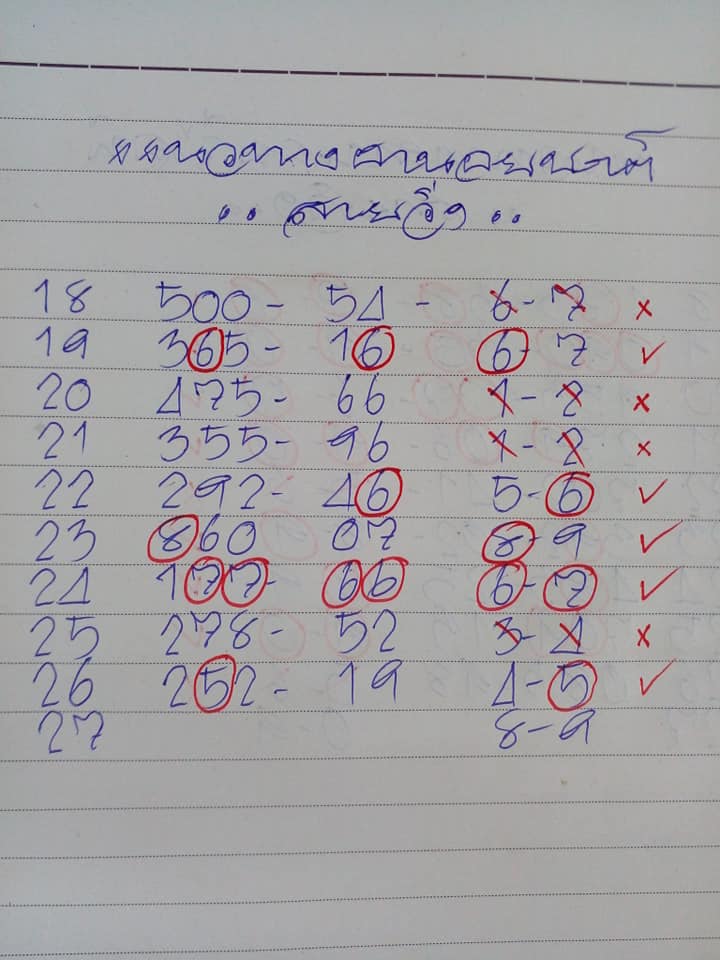 ..แนวทางฮานอยชาติ
.. สายวิ่ง ..
18 500 - 54 - 6 - 7 ×
19 365 - 16 6 - 7 ✓
20 475 - 66 1 - 2 ×
21 355 - 96 1 - 2 ×
22 292 - 46 5 - 6 ✓
23 860 07 8 - 9 ✓
24 177 - 66 6 - 7 ✓
25 278 - 52 3 - 4 ×
26 252 - 19 4 - 5 ✓
27 8 - 9